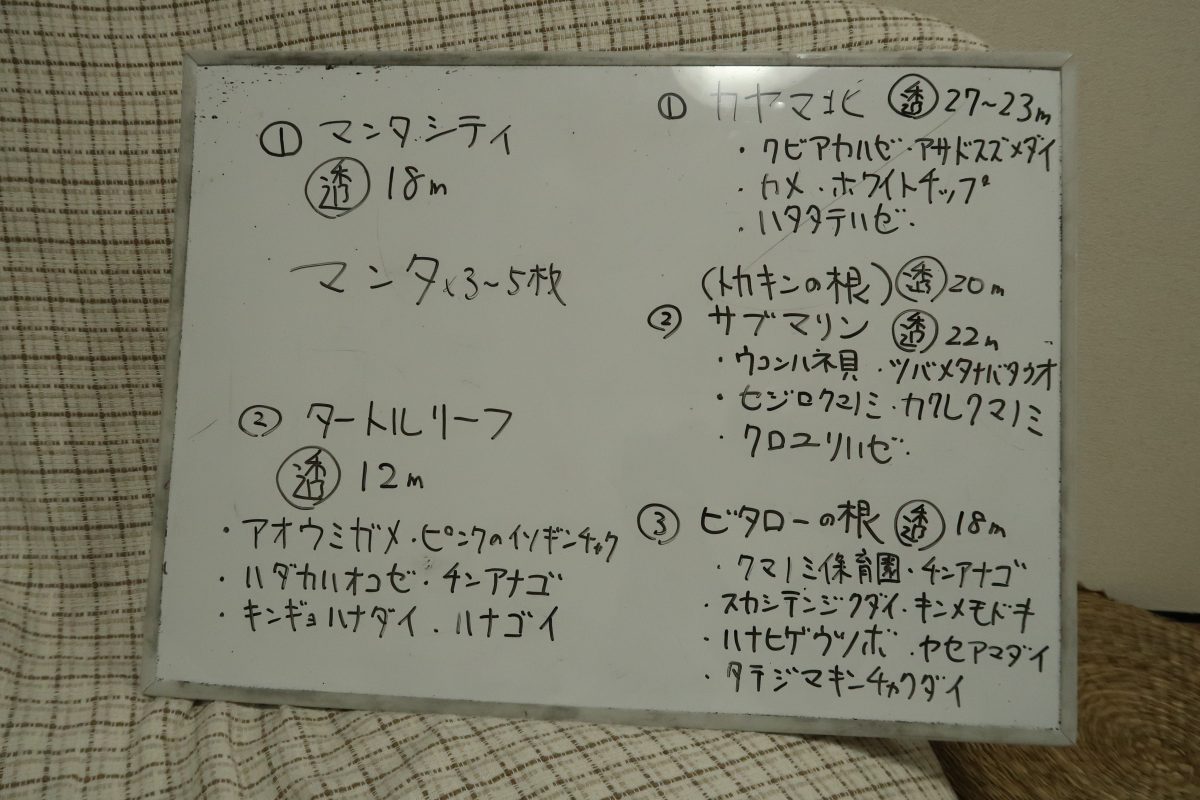 ① マンタシティ
透 18m
マンタ×3~5枚
② タートルリーフ
透 12m
・アオウミガメ・ピンクのイソギンチャク
・ハダカハオコゼ・チンアナゴ
・キンギョハナダイ.ハナゴイ
① カヤマ北 透 27~23m
・クビアカハゼ・アサドスズメダイ
・カメ・ホワイトチップ
・ハタタテハゼ・
(トカキンの根) 透 20m
② サブマリン 透 22m
・ウコンハネ貝・ツバメタナバタウオ
・セジロクマノミ・カクレクマノミ
・クロユリハゼ・
③ ビタローの根 透 18m
・クマノミ保育園・チンアナゴ
・スカシテンジクダイ・キンメモドキ
・ハナヒゲウツボ.ヤセアマダイ
・タテジマキンチャクダイ